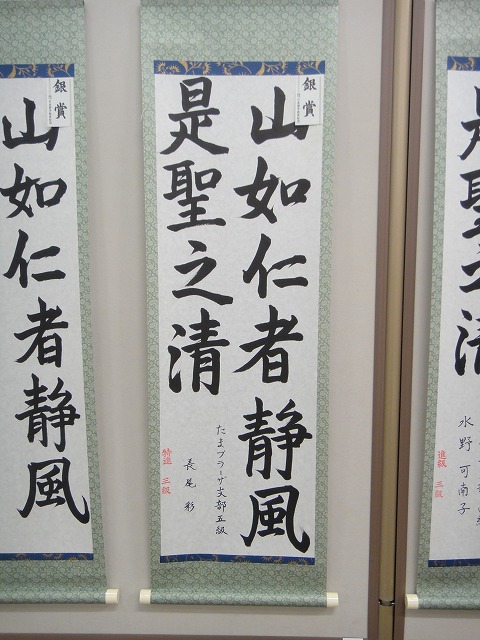 銀賞
山如仁者静風
是聖之清
たまプラーザ支部五級
長尾彩
特進 三級
銀賞
山如仁者静風
是聖之清
水野可南子
進級 三級